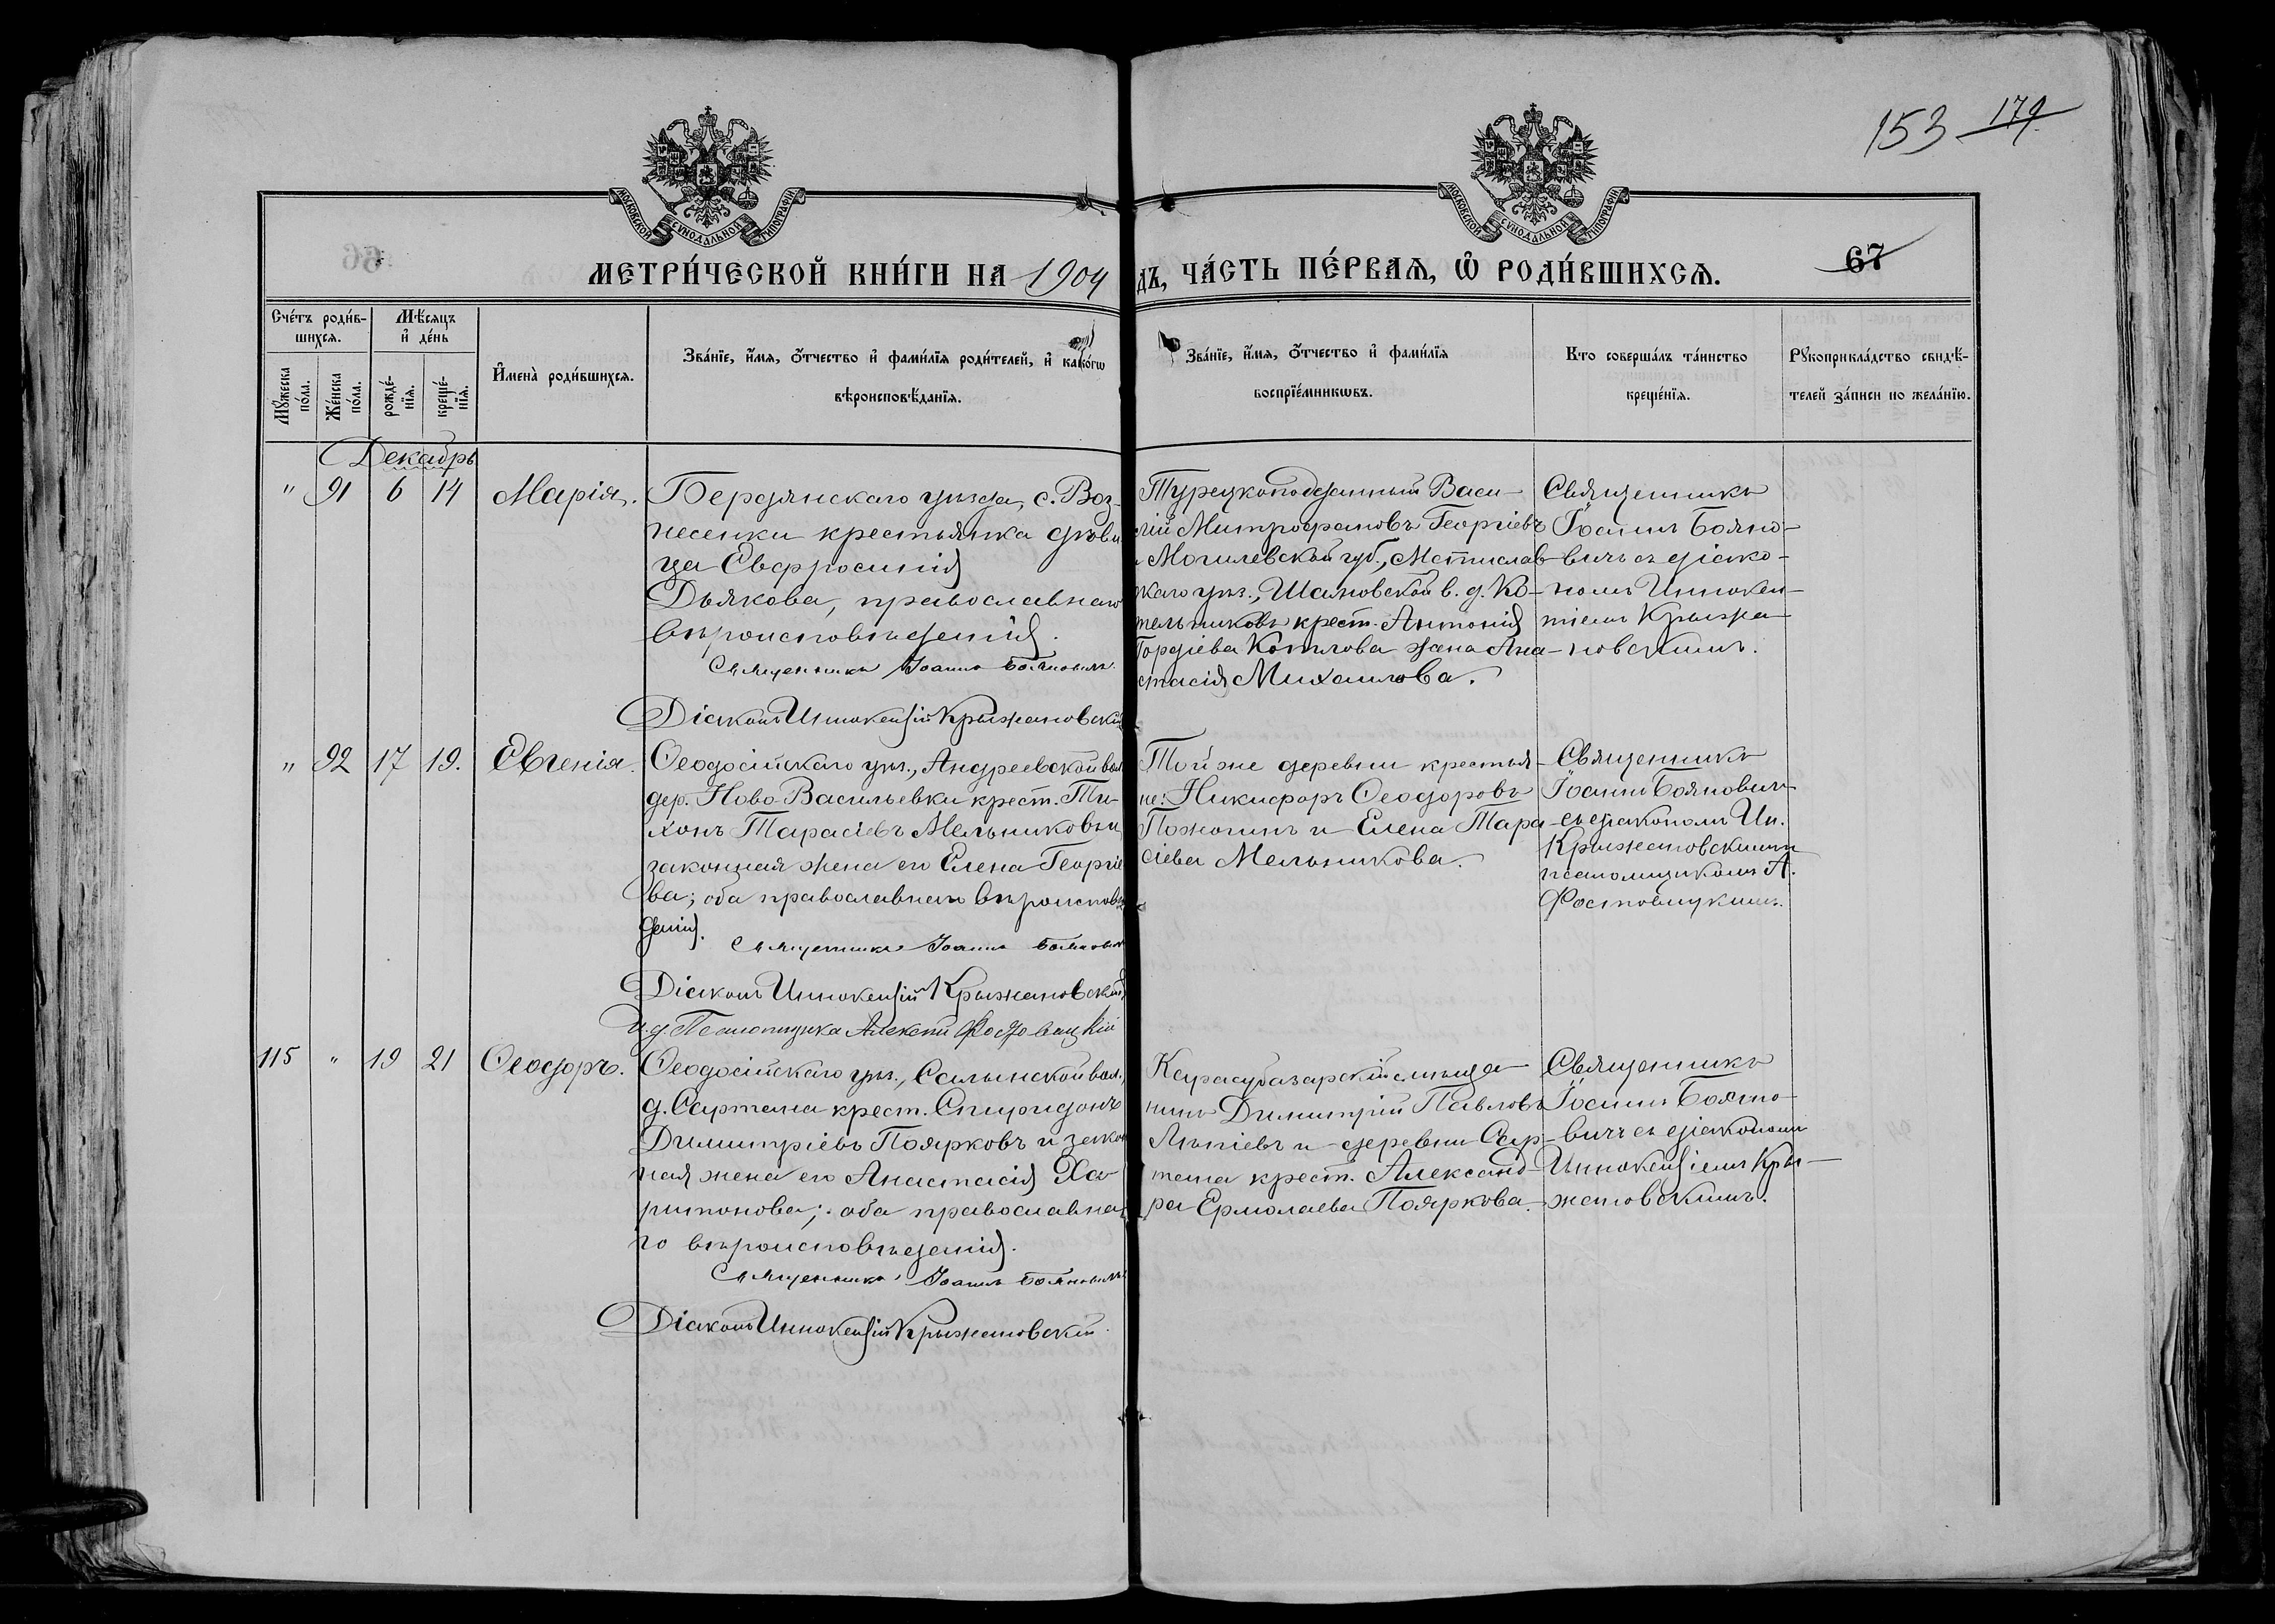 153 179
МОСКОВСКОЙ СѴНОДАЛЬНОЙ ТИПОГРАФІИ
МОСКОВСКОЙ СѴНОДАЛЬНОЙ ТИПОГРАФІИ
МЕТРИ́ЧЕСКОЙ КНИ́ГИ НА 1904
ДЪ, ЧА́СТЬ ПЕ́РВАѦ, Ѿ РОДИ́ВШИХСѦ.
67
Сче́тъ роди́в-
шихсѧ.
Мꙋ́жеска
по́ла.
Же́нска
по́ла.
Мѣ́сѧцъ
и҆ де́нь
рожде́-
нїѧ.
креще́-
нїѧ.
И҆мена̀ роди́вшихсѧ.
Зва́нїе, и҆́мѧ, ѻ҆́тчество и҆ фами́лїѧ роди́телей, и҆ како́гѡ
вѣроисповѣ́данїѧ.
Зва́нїе, и҆́мѧ, ѻ҆́тчество и҆ фами́лїѧ
воспрїе́мникѡвъ.
Кто соверша́лъ та́инство
креще́нїѧ.
Рꙋкоприкла́дство свидѣ́-
телей за́писи по жела́нїю.
Декабрь
" 91 6 14 Марія.
Бердянскаго уѣзда, с. Воз-
несенки крестьянка дѣви
ца Евфросинія
Дьякова, православнаго
вѣроисповѣданія.
Священникъ Іоаннъ Бояновичъ
Діаконъ Иннокентій Крыжановскій
Турецкоподданный Васи-
лій Митрофановъ Георгіевъ
Могилевской губ., Мстислав
скаго уѣз., Шамовской в. д. Ко-
тельниковъ крест. Антонія
Гордіева Котлова жена Ана-
стасія Михаилова.
Священникъ
Іоаннъ Бояно-
вичъ съ діако-
номъ Иннокен-
тіемъ Крыжа-
новскимъ.
" 92 17 19. Евгенія.
Ѳеодосійскаго уѣз., Андреевской вол.
дер. Ново-Васильевки крест. Ти-
хонъ Тарасіевъ Мельниковъ и
законная жена его Елена Георгіе
ва; оба православнаго вѣроисповѣ
данія.
Священникъ Іоаннъ Бояновичъ
Діаконъ Иннокентій Крыжановскій
и. д. Псаломщика Алексѣй
Той же деревни крестья-
не: Никифоръ Ѳеодоровъ
и Елена Тара
сіева Мельникова.
Священникъ
Іоаннъ Бояновичъ
съ діакономъ Ин.
Крыжановскимъ и
псаломщикомъ А.
115 " 19 21 Ѳеодоръ.
Ѳеодосійскаго уѣз., Салынской вол.,
д. Сартана крест. Спиридонъ
Димитріевъ Поярковъ и закон
ная жена его Анастасія Ха-
ритонова; оба православна
го вѣроисповѣданія.
Священникъ Іоаннъ Бояновичъ
Діаконъ Иннокентій Крыжановскій.
Карасубазарскій мѣща-
нинъ Димитрій Павловъ
и деревни Сар-
тана крест. Александ-
ра Ермолаева Пояркова.
Священникъ
Іоаннъ Бояно-
вичъ съ діакономъ
Иннокентіемъ Кры-
жановскимъ.